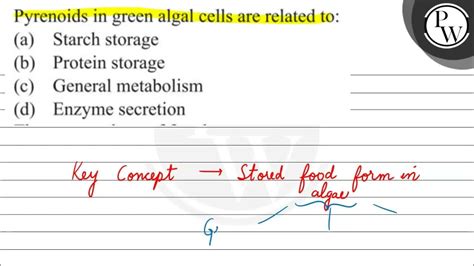 Pyrenoids in green algal cells are related to:
(a) Starch storage
(b) Protein storage
(c) General metabolism
(d) Enzyme secretion
PW
Key Concept → Stored food form in
algae
G